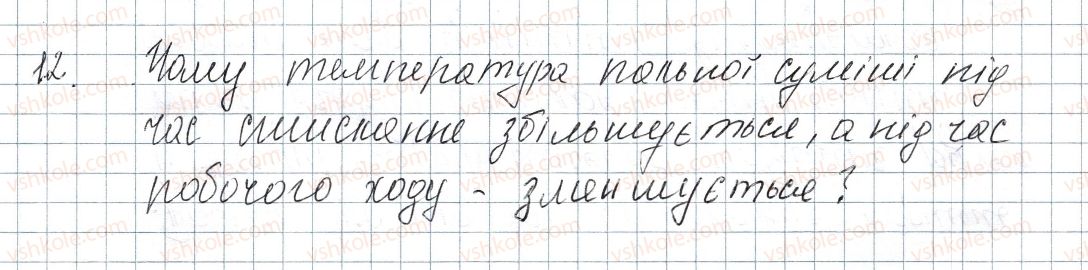 12. Чому температура пальної суміші під
час стиснення збільшується, а під час
робочого ходу - зменшується?